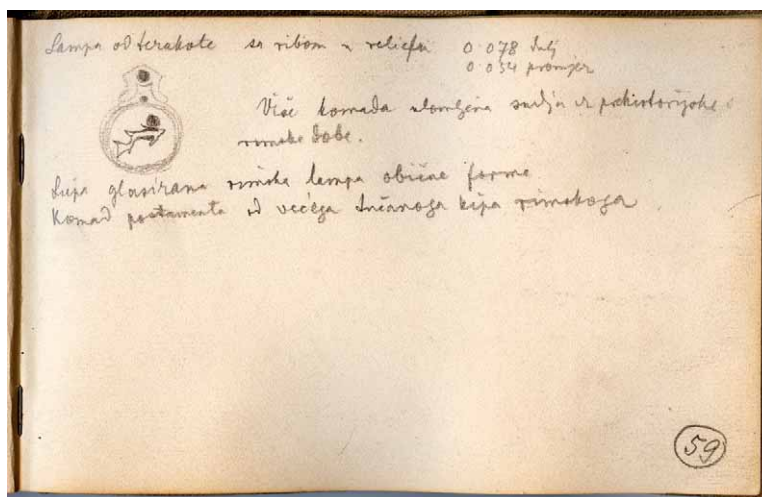 Lampa od terakote sa ribom u reliefu 0.078 dulj
0.054 promjer
Više komada ulomljena sudja iz prehistorijske i
rimske dobe.
Liepa glasirana rimska lampa obične forme
Komad postamenta od većega tučanoga kipa rimskoga
59